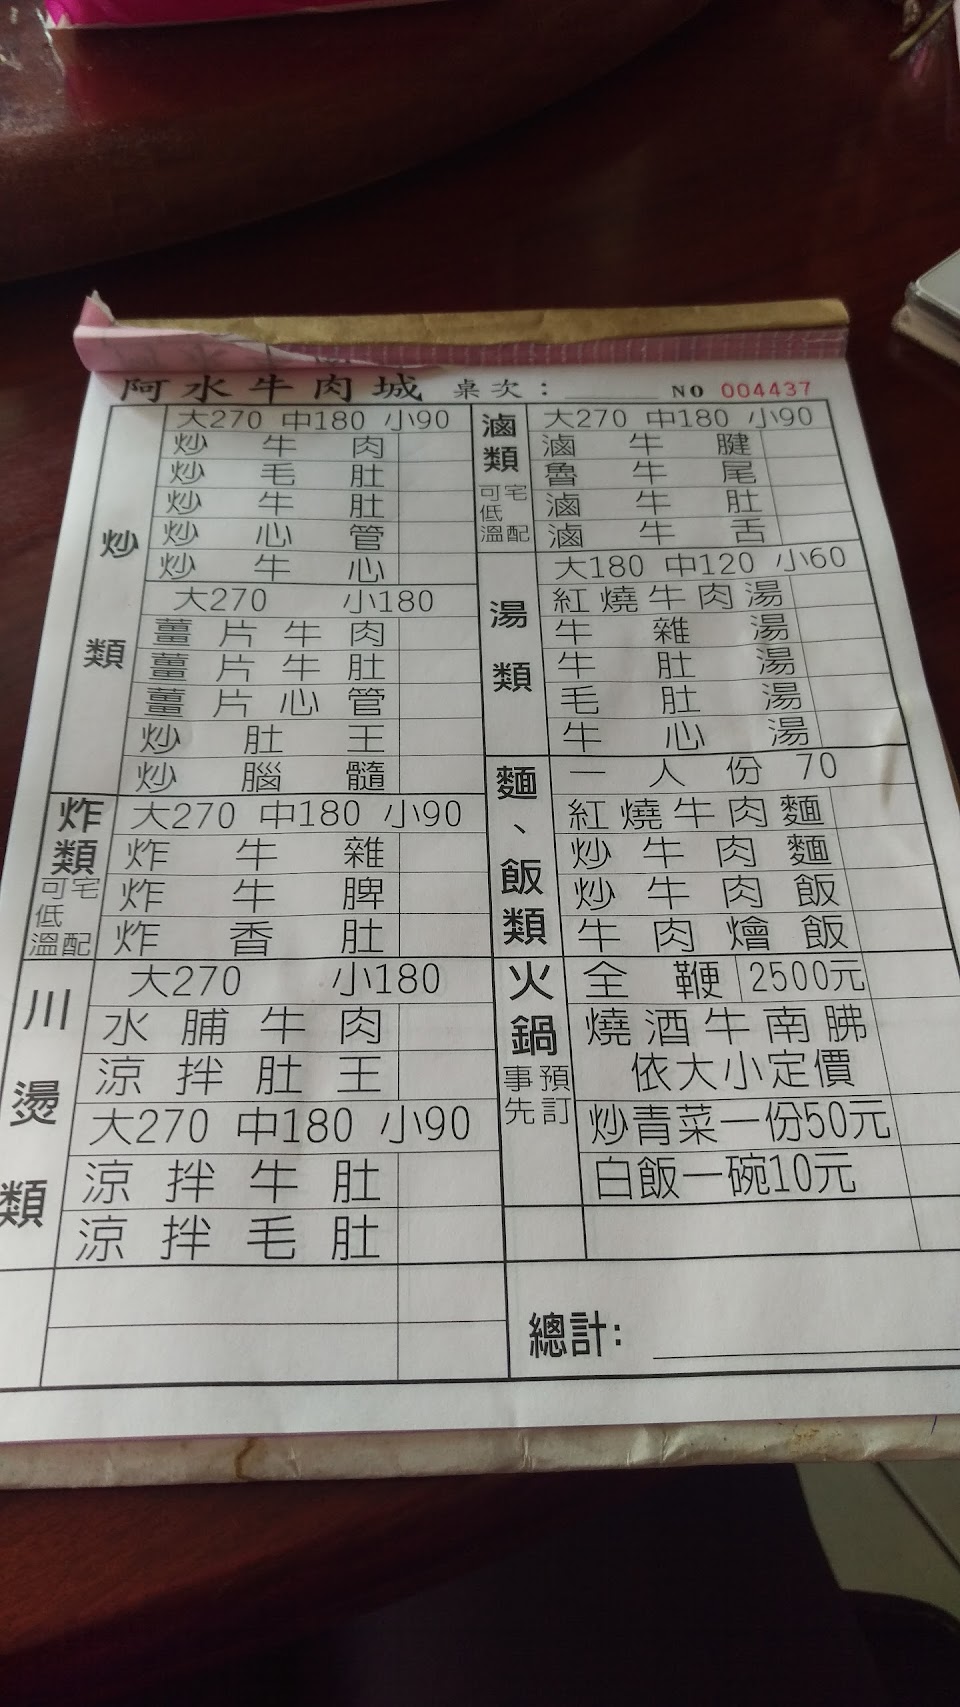 阿水牛肉城 桌次：
NO 004437
炒類
大270 中180 小90
炒牛肉
炒毛肚
炒牛肚
炒心管
炒牛心
大270 小180
薑片牛肉
薑片牛肚
薑片心管
炒肚王
炒腦髓
炸類
可宅
低
溫配
大270 中180 小90
炸牛雜
炸牛脾
炸香肚
川燙類
大270 小180
水脯牛肉
涼拌肚王
大270 中180 小90
涼拌牛肚
涼拌毛肚
滷類
可宅
低
溫配
大270 中180 小90
滷牛腱
魯牛尾
滷牛肚
滷牛舌
湯類
大180 中120 小60
紅燒牛肉湯
牛雜湯
牛肚湯
毛肚湯
牛心湯
麵、飯類
一人份 70
紅燒牛肉麵
炒牛肉麵
炒牛肉飯
牛肉燴飯
火鍋
事預
先訂
全鞭 2500元
燒酒牛南胇
依大小定價
炒青菜一份50元
白飯一碗10元
總計: